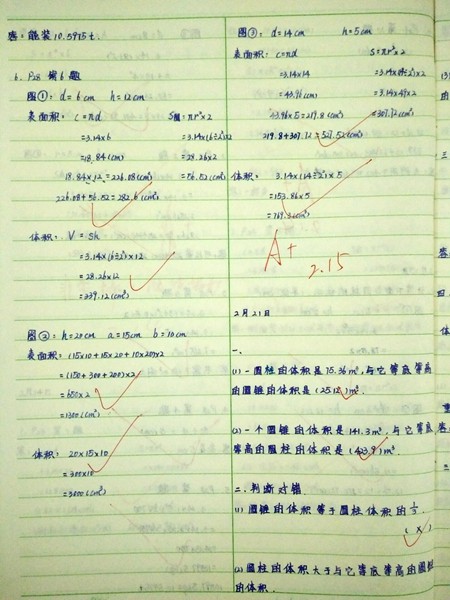 答：能装10.5975t.
6. P28 第6题
图①：d=6cm h=12cm
表面积： C=πd S底=πr²×2
=3.14×6 =3.14×(6÷2)²×2
=18.84(cm) =28.26×2
18.84×12=226.08(cm²) =56.52(cm²)
226.08+56.52=282.6(cm²)
体积： V=Sh
=3.14×(6÷2)²×12
=28.26×12
=339.12(cm³)
图②：h=20cm a=15cm b=10cm
表面积：(15×10+15×20+10×20)×2
=(150+300+200)×2
=650×2
=1300(cm²)
体积： 20×15×10
=300×10
=3000(cm³)
图③：d=14cm h=5cm
表面积： C=πd S=πr²×2
=3.14×14 =3.14×(14÷2)²×2
=43.96(cm) =3.14×49×2
43.96×5=219.8(cm²) =307.72(cm²)
219.8+307.72=527.52(cm²)
体积： 3.14×(14÷2)²×5
=153.86×5
=769.3(cm³)
A+
2.15
2月21日
一、
(1)一圆柱的体积是75.36m³,与它等底等高
的圆锥的体积是(25.12)m³.
(2)一个圆锥的体积是141.3m³,与它等底
等高的圆柱的体积是(423.9)m³.
二.判断对错.
(1)圆锥的体积等于圆柱体积的1/3.
(×)
(2)圆柱的体积大于与它等底等高的圆锥
的体积.